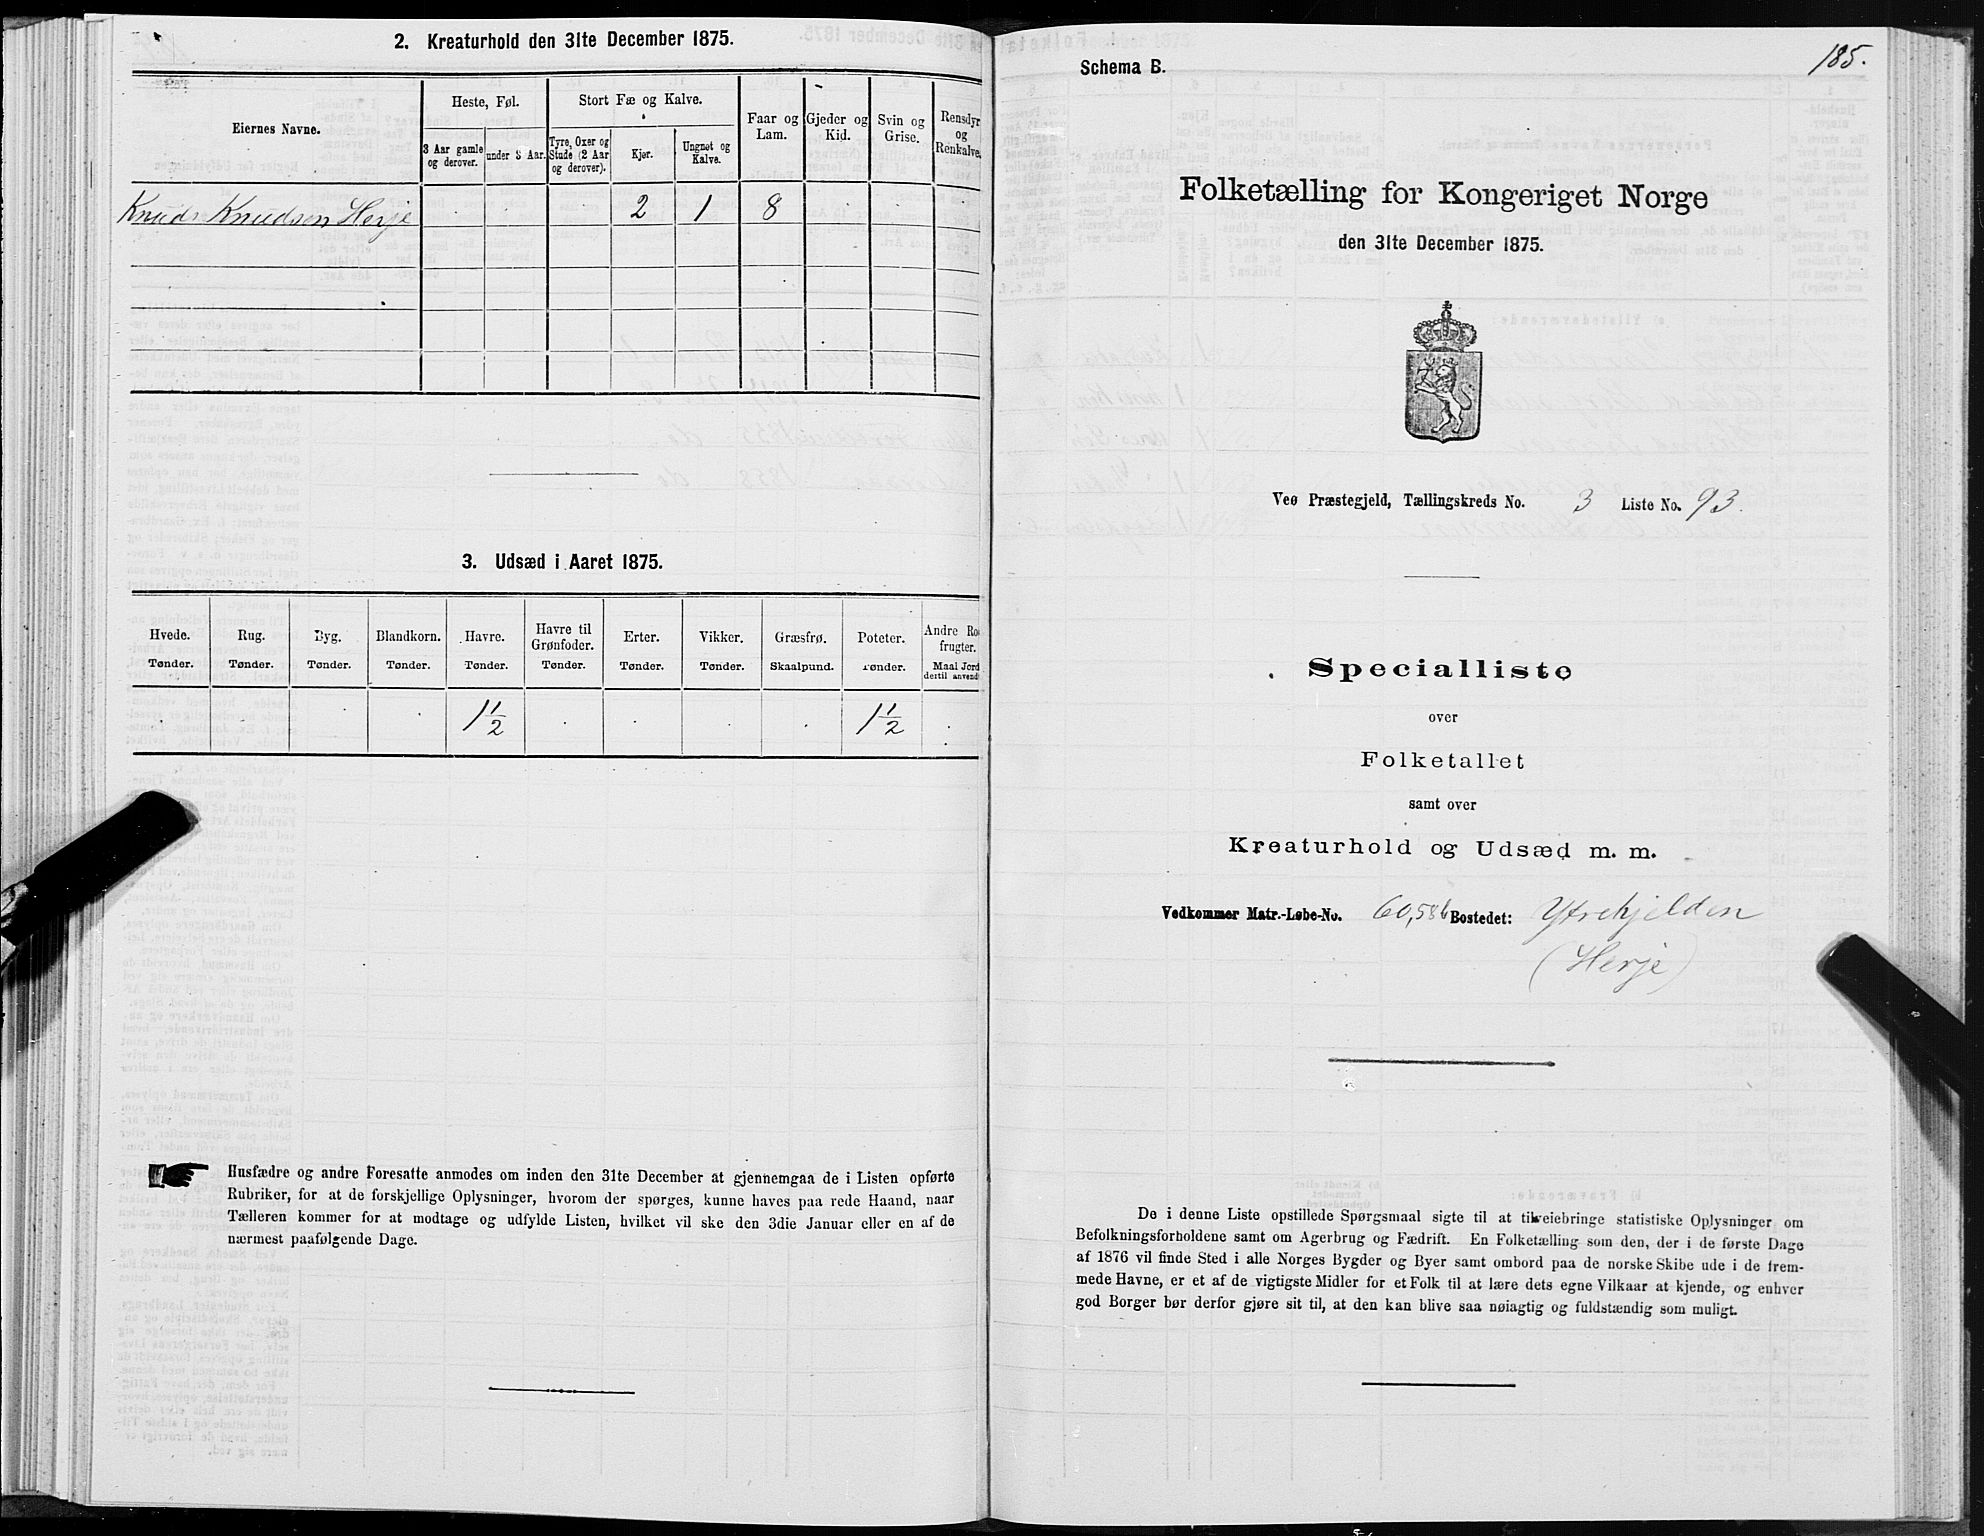 2. Kreaturhold den 31te December 1875.
Eiernes Navne.
Heste, Føl.
Stort Fæ og Kalve.
Faar og Lam.
Gjeder og Kid.
Svin og Grise.
Rensdyr og Renkalve.
3 Aar gamle og derover.
under 3 Aar.
Tyre, Oxer og Stude (2 Aar og derover).
Kjør.
Ungnøt og Kalve.
Knud Knudsen Herje . . . 2 1 8 . . .
3. Udsæd i Aaret 1875.
Hvede. Rug. Byg. Blandkorn. Havre. Havre til Grønfoder. Erter. Vikker. Græsfrø. Poteter. Andre Ro frugter.
Tønder. Tønder. Tønder. Tønder. Tønder. Tønder. Tønder. Tønder. Skaalpund. Tønder. Maal Jord dertil anvendt
. . . . 1 1/2 . . . . 1 1/2 .
Husfædre og andre Foresatte anmodes om inden den 31te December at gjennemgaa de i Listen opførte
Rubriker, for at de forskjellige Oplysninger, hvorom der spørges, kunne haves paa rede Haand, naar
Tælleren kommer for at modtage og udfylde Listen, hvilket vil ske den 3die Januar eller en af de
nærmest paafølgende Dage.
185.
Schema B.
Folketælling for Kongeriget Norge
den 31te December 1875.
Veø Præstegjeld, Tællingskreds No. 3 Liste No. 93.
Specialliste
over
Folketallet
samt over
Kreaturhold og Udsæd m. m.
Vedkommer Matr.-Løbe-No. 60,58b Bostedet: Ytrekjelden
(Herje)
De i denne Liste opstillede Spørgsmaal sigte til at tilveiebringe statistiske Oplysninger om
Befolkningsforholdene samt om Agerbrug og Fædrift. En Folketælling som den, der i de første Dage
af 1876 vil finde Sted i alle Norges Bygder og Byer samt ombord paa de norske Skibe ude i de frem-
mede Havne, er et af de vigtigste Midler for et Folk til at lære dets egne Vilkaar at kjende, og enhver
god Borger bør derfor gjøre sit til, at den kan blive saa nøiagtig og fuldstændig som muligt.